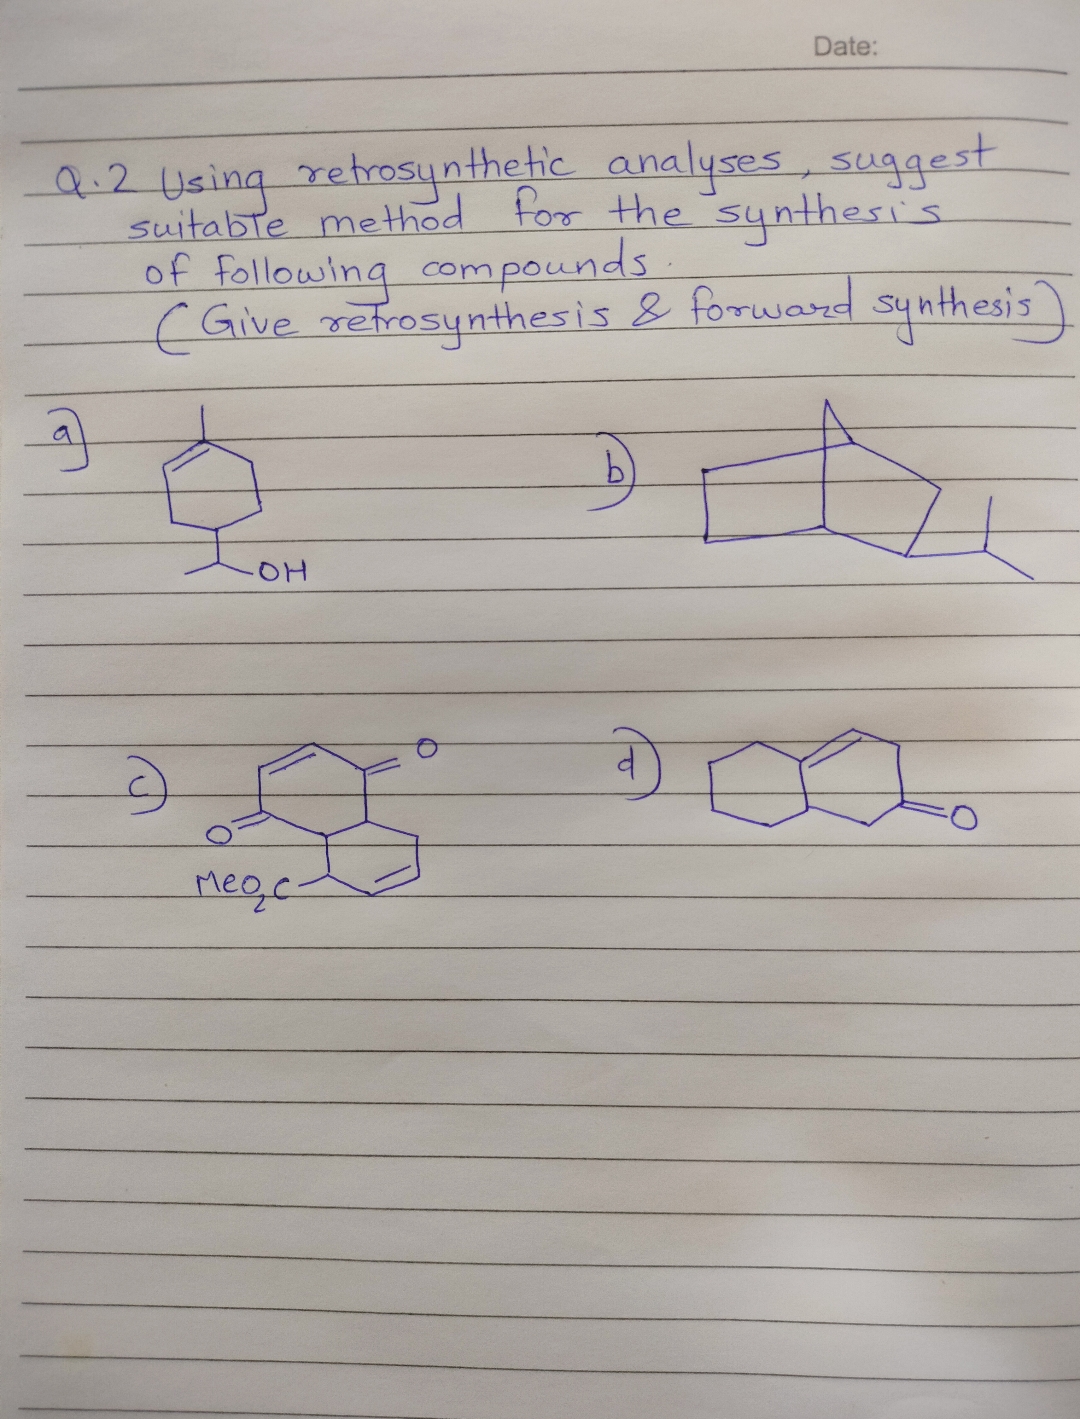 Date:
Q.2 Using retrosynthetic analyses, suggest
suitable method for the synthesis
of following compounds.
(Give retrosynthesis & forward synthesis)
a)
b)
OH
c)
O
d)
O
O
MeO₂C